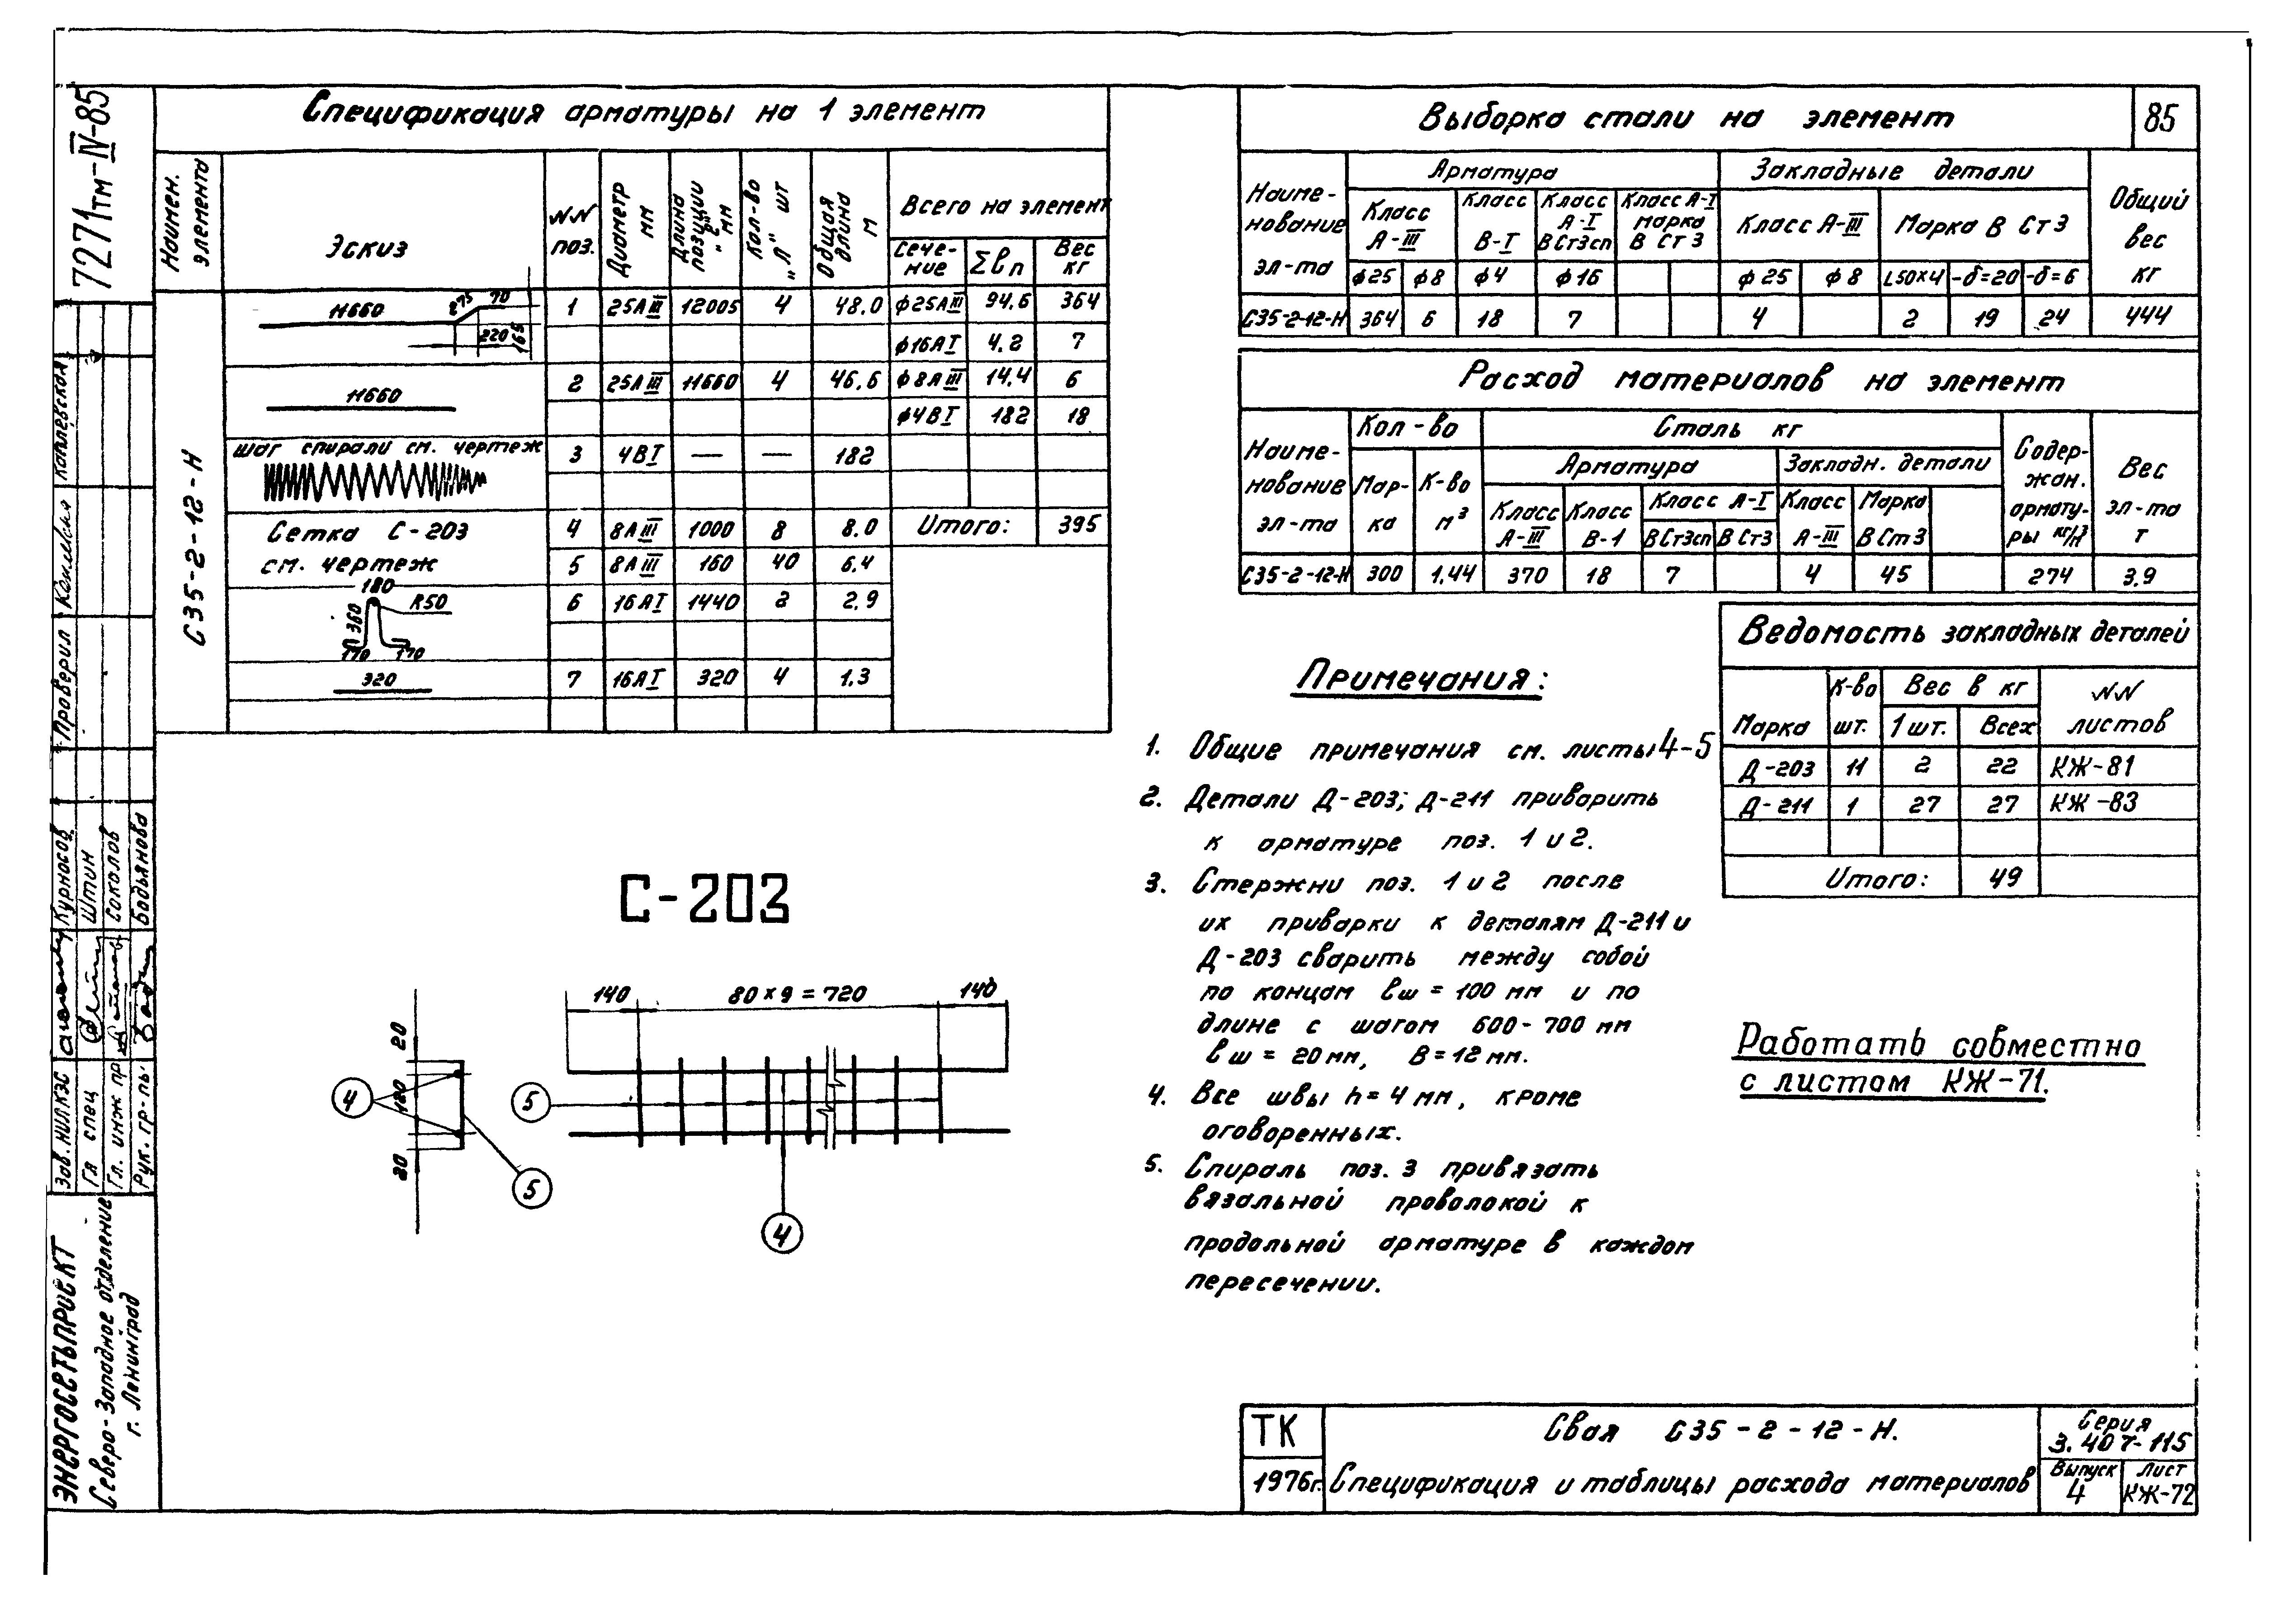 7271тм-IV-85
Спецификация арматуры на 1 элемент
Наимен. элемента
Эскиз
NN поз.
Диаметр мм
Длина позиции "ℓ" мм
Кол-во "Л" шт
Общая длина м
Всего на элемент
Сече-ние
Σℓп
Вес кг
С35-2-12-Н
11660 275 70 220 165
1 25АIII 12005 4 48.0 ф25АIII 94,6 364
ф16АI 4.2 7
11660
2 25АIII 11660 4 46.6 ф8АIII 14.4 6
ф4ВI 182 18
шаг спирали см. чертеж
3 4ВI — — 182
Сетка С-203
см. чертеж
4 8АIII 1000 8 8.0 Итого: 395
5 8АIII 160 40 6.4
180 R50 360 170 170
6 16АI 1440 2 2.9
320
7 16АI 320 4 1.3
Выборка стали на элемент
85
Наиме-нование эл-та
Арматура
Закладные детали
Общий вес кг
Класс А-III
Класс В-I
Класс А-I ВСт3сп
Класс А-I марка В Ст 3
Класс А-III
Марка В Ст 3
ф25 ф8 ф4 ф16 ф25 ф8 L50×4 -δ=20 -δ=6
С35-2-12-Н 364 6 18 7 4 2 19 24 444
Расход материалов на элемент
Наиме-нование эл-та
Кол-во
Сталь кг
Содер-жан. армату-ры кг/м³
Вес эл-та т
Мар-ка
К-во м³
Арматура
Закладн. детали
Класс А-III
Класс В-1
Класс А-I
ВСт3сп
ВСт3
Класс А-III
Марка ВСт3
С35-2-12-Н 300 1,44 370 18 7 4 45 274 3.9
Ведомость закладных деталей
Марка
К-во шт.
Вес в кг
1 шт.
Всех
NN листов
Д-203 11 2 22 КЖ-81
Д-211 1 27 27 КЖ-83
Итого: 49
Примечания:
1. Общие примечания см. листы 4-5
2. Детали Д-203; Д-211 приварить
к арматуре поз. 1 и 2.
3. Стержни поз. 1 и 2 после
их приварки к деталям Д-211 и
Д-203 сварить между собой
по концам ℓш = 100 мм и по
длине с шагом 600-700 мм
ℓш = 20 мм, В=12 мм.
4. Все швы h=4 мм, кроме
оговоренных.
5. Спираль поз. 3 привязать
вязальной проволокой к
продольной арматуре в каждом
пересечении.
Работать совместно
с листом КЖ-71.
С-203
140 80×9=720 140
20
120
20
4
5
5
4
Проверил Каплевская
Зав. НИЛКЭС Курносов
Гл спец Штин
Гл. инж пр Соколов
Рук. гр-пы Бодьянова
ЭНЕРГОСЕТЬПРОЕКТ
Северо-Западное отделение
г. Ленинград
ТК
1976г.
Свая С35-2-12-Н.
Спецификация и таблицы расхода материалов
Серия
3.407-115
Выпуск 4
Лист КЖ-72